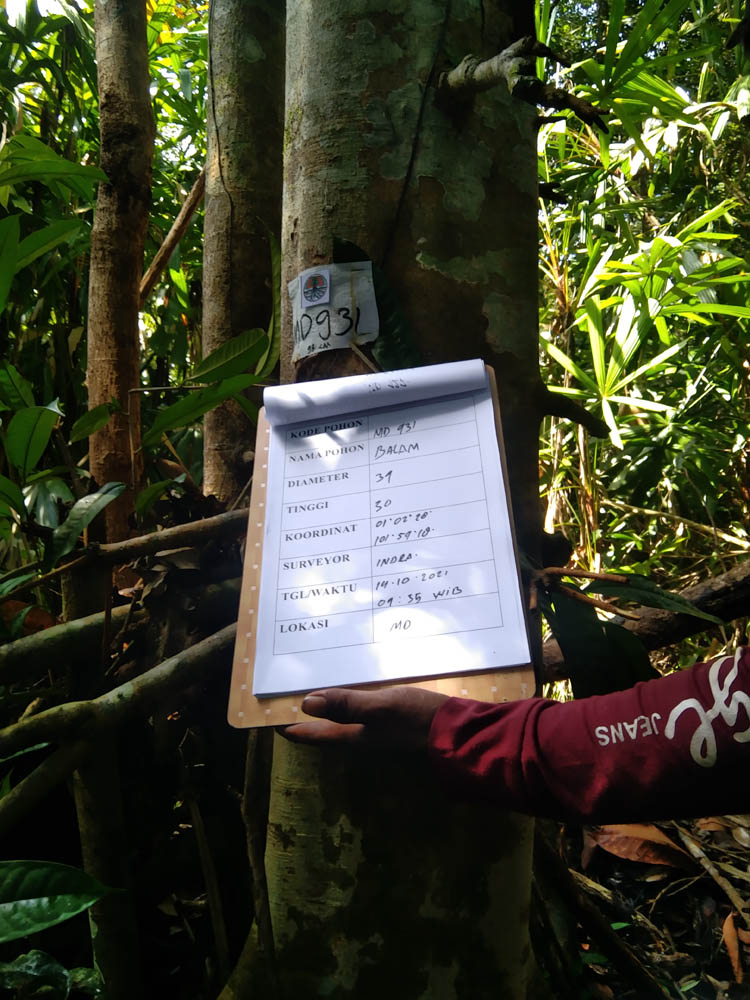 MD931
KODE POHON MD 931
NAMA POHON BALAM
DIAMETER 39
TINGGI 30
KOORDINAT 01°02'28"
101°59'18"
SURVEYOR INDRA.
TGL/WAKTU 14.10.2021
09:35 WIB
LOKASI MD
JEANS